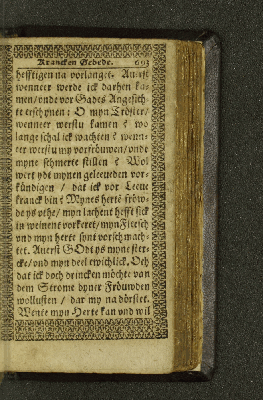 Krancken Gebede. 693
hefftigen na vorlanget. Auerst
wenneer werde ick darhen ka-
men / vnde vor Gades Angesich-
te erschynen: O myn Tröster /
wenneer werstu kamen? wo
lange schal ick wachten? wenn-
er werstu my vorfröuwen / vnde
myne schmerte stillen? Wol
wert ydt mynen geleeueden vor-
kündigen / dat ick vor Leeue
kranck bin? Mynes herte fröw-
de ys vthe / myn lachent hefft sick
in weinent vorkeret / myn Fleesch
vnd myn herte synt vorschmach-
tet. Auerst GOdt ys myne ster-
cke / vnd myn deel ewichlick. Och
dat ick doch drincken möchte van
dem Strome dyner Fröuwden
wollusten / dar my na dörstet.
Wente myn Herte kan vnd wil